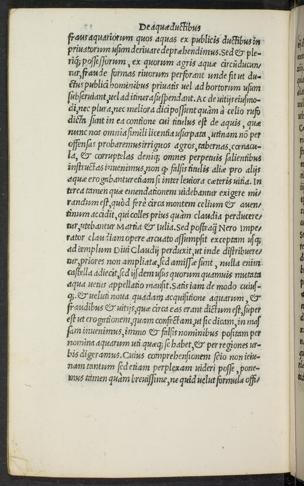 De aquæductibus
fraus aquariorum quos aquas ex publicis ductibus in
priuatorum usum deriuare deprehendimus. Sed & ple-
riq; possessorum, ex quorum agris aquæ circunducun-
tur, fraude formas riuorum perforant unde fit ut du-
ctus publici hominibus priuatis uel ad hortorum usum
subseruiant, uel ad itinera suspendant. Ac de uitijs eiusmo-
di, nec plura, nec meliora dici possunt quàm à celio rufo
dicta sunt in ea contione cui titulus est de aquis, quæ
nunc nos omnia simili licentia usurpata, utinam nõ per
offensas probaremus irriguos agros, tabernas, cœnacu-
la, & corruptelas deniq; omnes perpetuis salientibus
instructas inuenimus, non q; falsis titulis aliæ pro alijs
aquæ erogabantur etiam si inter leuiora cæteris uitia. In
terea tamen quæ emendationem uidebantur exigere mi
randum est, quòd ferè circa montem celium & auen-
tinum accidit, qui colles prius quàm claudia perducere
tur, utebantur Martia & iulia. Sed postquã Nero impe-
rator claudiam opere arcuato assumpsit exceptam usq;
ad templum Diui Claudij perduxit, ut inde distribuere
tur, priores non ampliatæ, sed amissæ sunt, nulla enim
castella adiecit, sed ijsdem usus quorum quamuis mutata
aqua uetus appellatio mansit. Satis iam de modo cuius-
q; & ueluti noua quadam acquisitione aquarum, &
fraudibus & uitijs, quæ circa eas erant dictum est, super
est ut erogationem, quam confectam, ut sic dicam, in mas
sam inuenimus, immo & falsis nominibus positam per
nomina aquarum uti quæq; se habet, & per regiones ur-
bis digeramus. Cuius comprehensionem scio non ieiu-
nam tantum sed etiam perplexam uideri posse, pone-
mus tamen quàm breuissime, ne quid uelut formulæ offi-